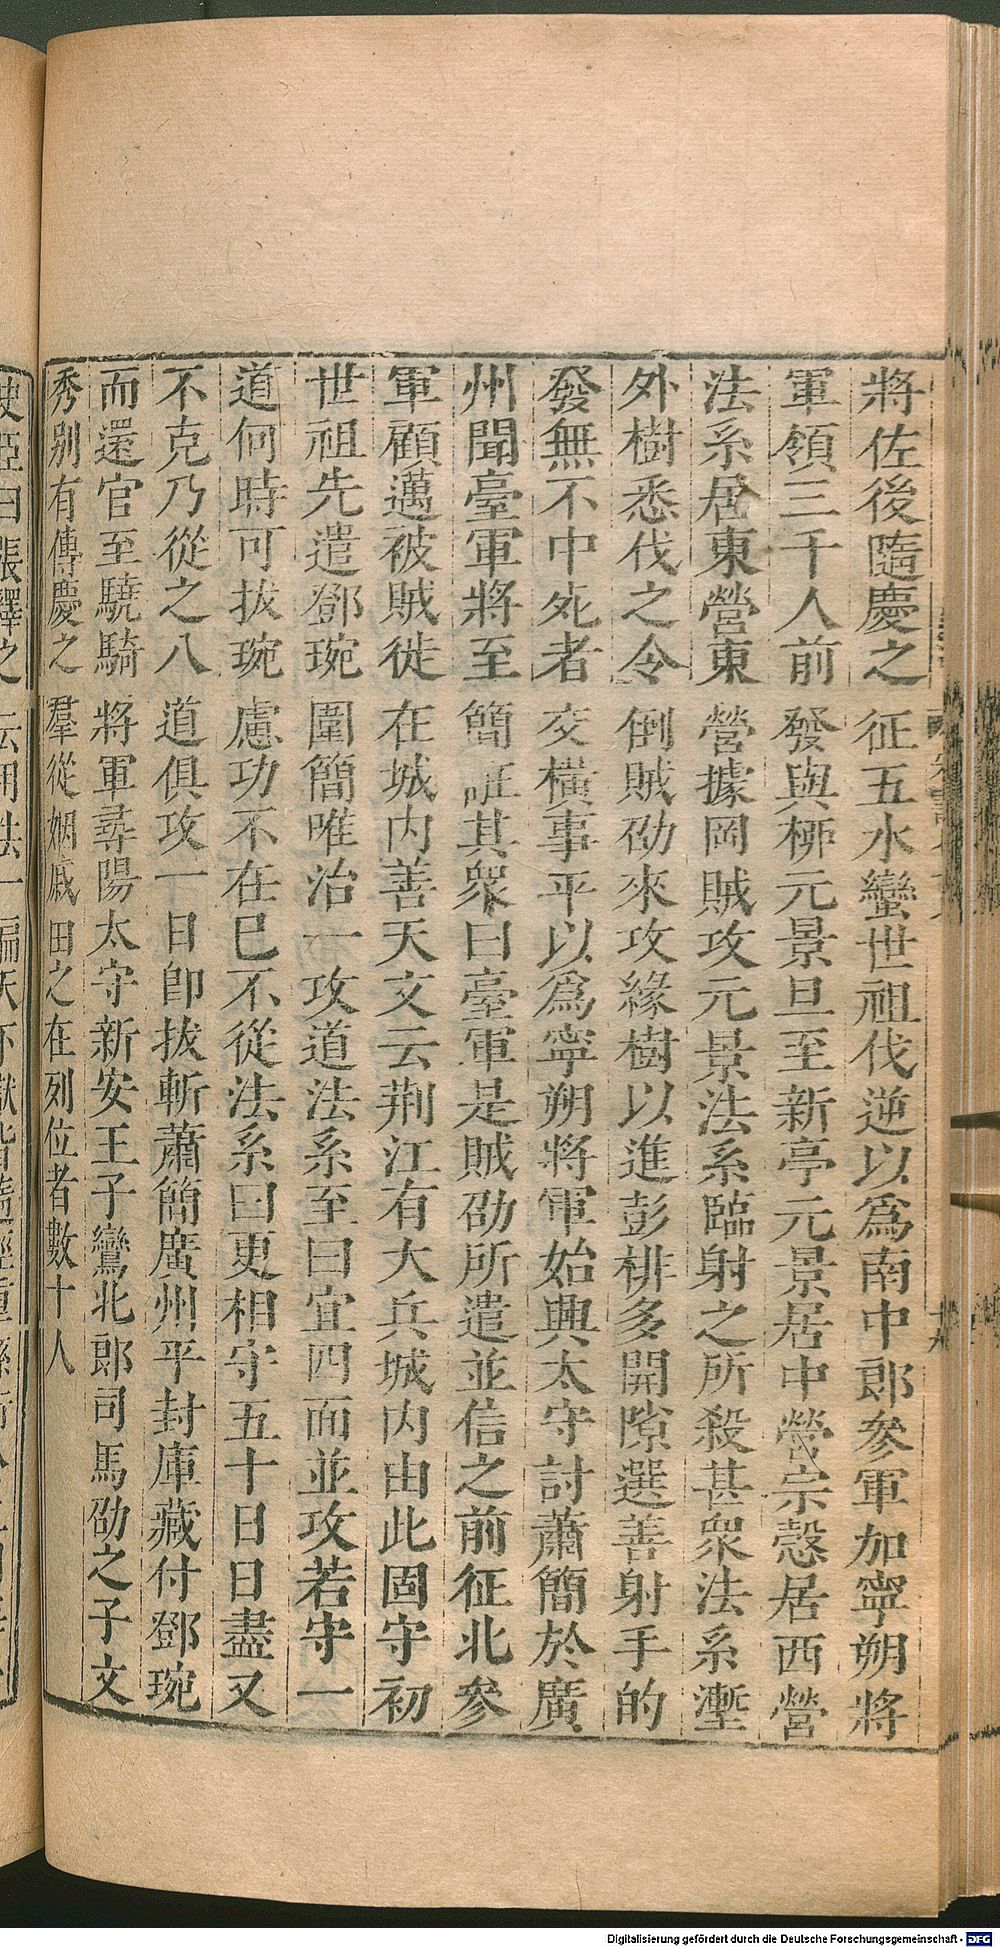 將佐後隨慶之征五水蠻世祖伐逆以爲南中郎參軍加寧朔將
軍領三千人前發與桺元景旦至新亭元景居中營宗愨居西營
法系居東營東營據岡賊攻元景法系臨射之所殺甚衆法系塹
外樹悉伐之令倒賊劭來攻緣樹以進彭棑多開隙選善射手的
發無不中死者交橫事平以爲寧朔將軍始興太守討蕭簡於廣
州聞臺軍將至簡誑其衆曰臺軍是賊劭所遣並信之前征北參
軍顧邁被賊徙在城內善天文云荆江有大兵城內由此固守初
世祖先遣鄧琬圍簡唯治一攻道法系至曰宜四面並攻若守一
道何時可拔琬慮功不在已不從法系曰更相守五十日日盡又
不克乃從之八道俱攻一日卽拔斬蕭簡廣州平封庫藏付鄧琬
而還官至驍騎將軍尋陽太守新安王子鸞北郎司馬劭之子文
秀別有傳慶之羣從姻戚田之在列位者數十人
Digitalisierung gefördert durch die Deutsche Forschungsgemeinschaft - DFG